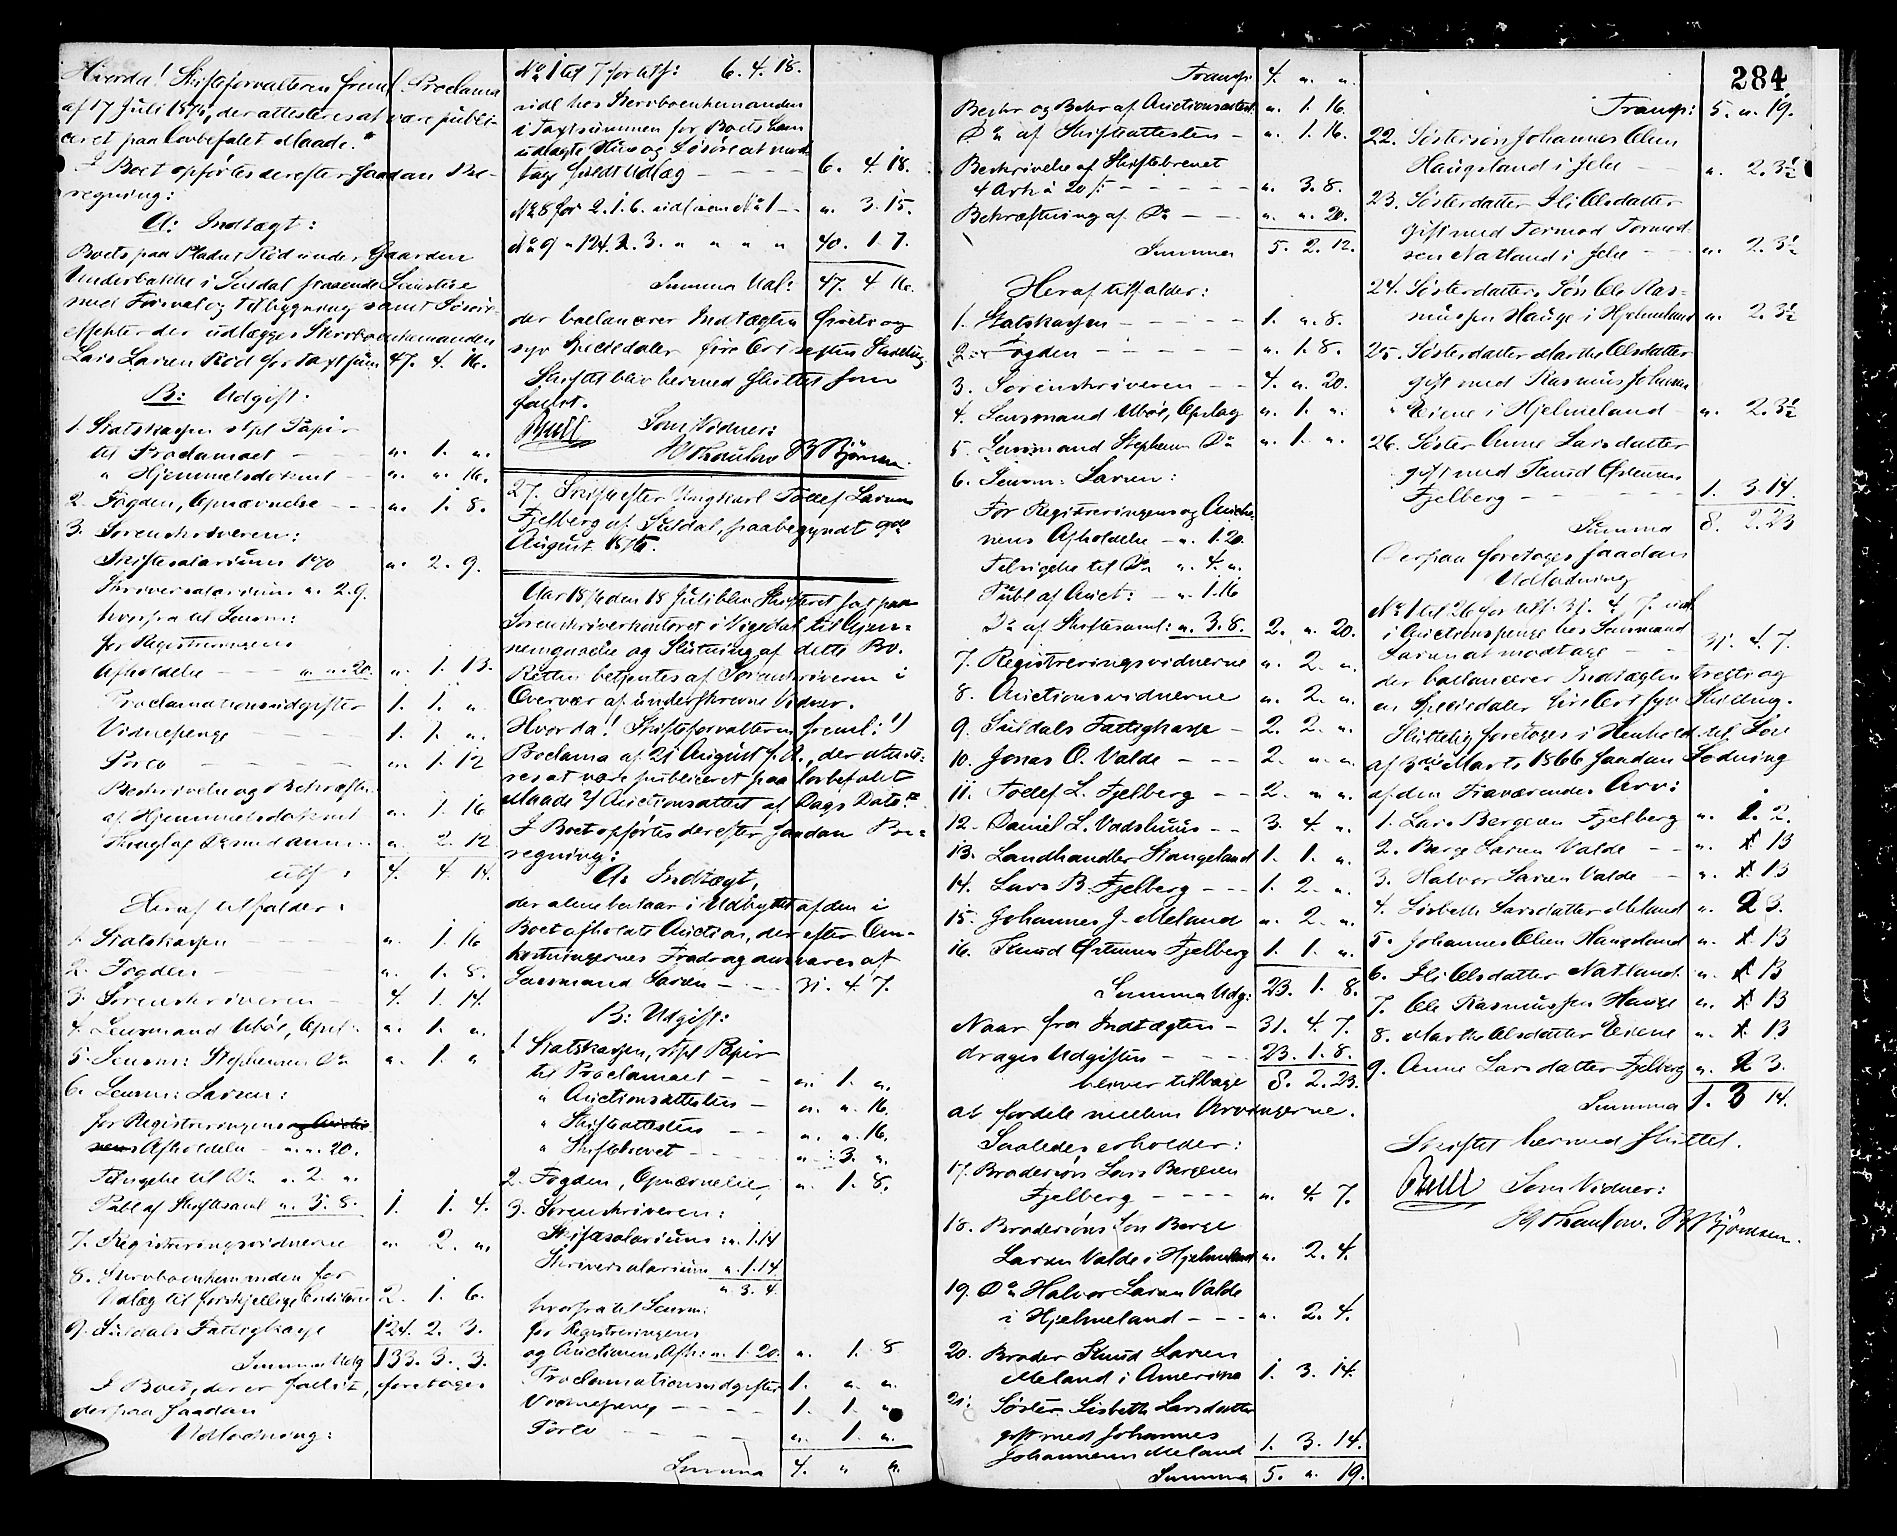 Hvorda! Skifteforvalteren freml. Proclama
af 17 Juli 1875, der attesteres at være publi-
ceret paa lovbefalet Maade.
I Boet opførtes derefter saadan Be-
regning:
A: Indtægt:
Boets paa Pladset Rød under Gaarden
i Suldal staaende
med og Tilbygning samt Løsøre
effekter der udlægges Stervboenkemanden
Lars Larsen Rød for Taxtsum 47. 4. 16.
B: Udgift:
1. Statskassen stpl Papir
til Proclamaet - ". 1. ".
" Hjemmelsdokmt - ". ". 16.
2. Fogden, Opnævnelse - - - ". 1. 8.
3. Sorenskriveren:
Skiftesalarium ". 2. 9.
Skriversalarium ". 2. 9.
hvorfra til Lensm:
for Registreringens
Afholdelse - - ". ". 20. ". 1. 13.
Proclamationsudgifter 1. 1. "
Vidnepenge - - - 1. 1. ".
Porto - - - - - ". 1. 12
Beskrivelse og Bekræftn.
af Hjemmelsdokmt ". 1. 16
". 2. 12
Utf: 4. 4. 14.
Heraf tilfalder:
1. Statskassen ". 1. 16
2. Fogden - ". 1. 8.
3. Sorenskriveren - 4. 1. 14.
4. Lensmand Ubøe, Opsl. ". 1. ".
5. Lensm: Stephensen Do ". 1. "
6. Lensm: Larsen:
for Registreringens og Auctio-
nens Afholdelse - ". ". 20.
Tilsigelse til Do ". 2. ".
Publ af Skiftesaml ". 3. 8. 1. 1. 4.
7. Registreringsvidnerne ". 2. ".
8. Stervboenkemanden for
Udlæg til forskjellige Creditorer 2. 1. 6.
9. Suldals Fattigkasse 124. 2. 3.
Summa Udg 133. 3. 3.
I Boet, der er fallit, foretoges
derpaa saadan
Udlodning:
No 1 til 7 for Utf: 6. 4. 18.
udl hos Stervboenkemanden
i Taxtsummen for Boets ham
udlagte Hus og Løsøre at mod-
tage fuldt Udlæg - - - - 6. 4. 18.
No 8 for 2. 1. 6. udl som No 1 - - ". 3. 15.
No 9 " 124. 2. 3. " " " " 40. 1. 7.
Summa Udl: 47. 4. 16.
der ballancerer Indtægten firti og
syv Speciedaler fire Ort sexten Skilling
Skiftet blev hermed sluttet som
fallit.
Bull Som Vidner:
H Thaulow B Bjørnsen
27. Skifte efter Ungkarl Tollef Larsen
Fjelberg af Suldal, paabegyndt 9de
August 1875.
Aar 1876 den 18 Juli blev Skifteret sat paa
Sorenskriverkontoret i Vigedal til Gjen-
nemgaaelse og Slutning af dette Bo.
Retten betjentes af Sorenskriveren i
Overvær af underskrevne Vidner.
Hvorda! Skifteforvalteren freml: 1)
Proclama af 21 August f. A., der atteste-
res at være publiceret paa lovbefalet
Maade 2) Auctionsattest af Dags Dato.
I Boet opførtes derefter saadan Be-
regning:
A: Indtægt,
der alene bestaar i Udbyttet af den i
Boet afholdte Auction, der efter Om-
kostningernes Fradrag ansvares af
Lensmand Larsen - - - 31. 4. 7.
B: Udgift:
1 Statskassen, stpl Papir
til Proclamaet - - ". 1. ".
" Auctionsattesten - ". ". 16.
" Skifteattesten - - ". ". 16.
" Skiftebrevet - - - - ". 3. ".
2. Fogden, Opnævnelse, ". 1. 8.
3. Sorenskriveren:
Skiftesalarium: ". 1. 14
Skriversalarium ". 1. 14.
". 3. 4.
hvorfra til Lensm:
for Registreringens
og Auctionens Afh: ". 1. 20. ". 1. 8
Proclamationsudgifter 1. ". ".
Vidnepenge - - - - 1. 1. "
Porto - - - - - ". 1. ".
Summa 4. " ".
284
Transp: 4. ". ".
Beskr og Bekr af Auctionsattest ". 1. 16.
Do af Skifteattesten - ". 1. 16.
Beskrivelse af Skiftebrevet
4 Ark à 20 s: - - - - - ". 3. 8.
Bekræftning af Do - - ". ". 20.
Summa 5. 2. 12.
Heraf tilfalder:
1. Statskassen - - - - - 1. ". 8.
2. Fogden - - - - - ". 1. 8.
3. Sorenskriveren - - 4. ". 20.
4. Lensmand Ubøe, Opslag ". 1. ".
5. Lensmand Stephensen Do ". 1. ".
6. Lensm: Larsen:
For Registreringens og Auctio-
nens Afholdelse - ". 1. 20.
Tilsigelse til Do ". 4. ".
Publ af Auct: - ". 1. 16
Do af Skiftesaml: ". 3. 8. 2. ". 20.
7. Registreringsvidnerne ". 2. ".
8. Auctionsvidnerne ". 2. ".
9. Suldals Fattigkasse - 2. 2. ".
10. Jonas O. Valde - - - 2. ". ".
11. Tollef L. Fjelberg - - 2. ". ".
12. Daniel L. Vadshuus - - 3. 4. ".
13. Landhandler Stangeland 1. 1. ".
14. Lars B. Fjelberg - - - 1. 2. ".
15. Johannes J. Meland ". 2. ".
16. Knud Østensen Fjelberg 1. 1. ".
Summa Udg: 23. 1. 8.
Naar fra Indtægten - 31. 4. 7.
drages Udgiften - - - 23. 1. 8.
bliver tilbage 8. 2. 23.
at fordele mellem Arvingerne.
Saaledes erholder:
17. Brodersøn Lars Bergesen
Fjelberg - - - - ". 4. 7.
18. Brodersøns Søn Berge
Larsen Valde i Hjelmeland ". 2. 4.
19. Do Halvor Larsen Valde
i Hjelmeland - - - ". 2. 4.
20. Broder Knud Larsen
Meland i Amerika 1. 3. 14.
21. Søster Lisbeth Larsdatter
gift med Johannes
Johannessen Meland 1. 3. 14.
Summa 5. ". 19.
Transp: 5. ". 19.
22. Søstersøn Johannes Olsen
Haugsland i Jelse - - ". 2. 3½
23. Søsterdatter Eli Olsdatter
gift med Tormod Tormod-
sen Natland i Jelse - - - ". 2. 3½
24. Søsterdatters Søn Ole Ras-
mussen Hauge i Hjelmeland ". 2. 3½
25. Søsterdatter Marthe Olsdatter
gift med Rasmus Johnsen
Eiene i Hjelmeland - ". 2. 3½
26. Søster Anne Larsdatter
gift med Knud Østensen
Fjelberg - - - - - - 1. 3. 14.
Summa 8. 2. 23
Derpaa foretoges saadan
Udlodning
No 1 til 26 for Utf: 31. 4. 7. udl.
i Auctionspenge hos Lensmand
Larsen at modtage - - - 31. 4. 7.
der ballancerer Indtægten treti og
en Speciedaler fire Ort syv Skilling.
Sluttelig foretoges i Henhold til Lov
af 3die Marts 1866 saadan Lodning
af den Fraværendes Arv:
1. Lars Bergesen Fjelberg ". 1. 2.
2. Berge Larsen Valde - - ". 13
3. Halvor Larsen Valde - - ". 13
4. Lisbeth Larsdatter Meland ". 2 3.
5. Johannes Olsen Haugsland ". 13
6. Eli Olsdatter Natland ". 13
7. Ole Rasmussen Hauge ". 13
8. Marthe Olsdatter Eiene ". 13
9. Anne Larsdatter Fjelberg ". 2 3.
Summa 1. 3 14.
Skiftet hermed sluttet.
Bull Som Vidner:
H Thaulow. B Bjørnsen.